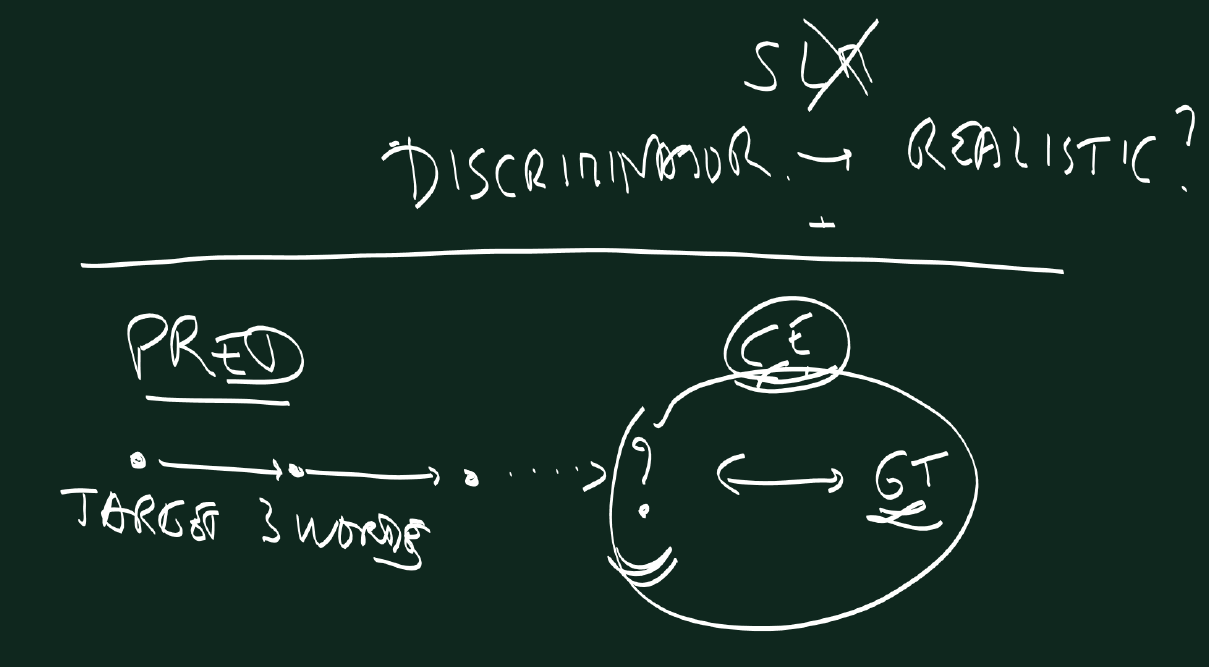 SL
DISCRIMINATOR. → REALISTIC?
PRED
CE
? ↔ GT
TARGET 3 WORDS